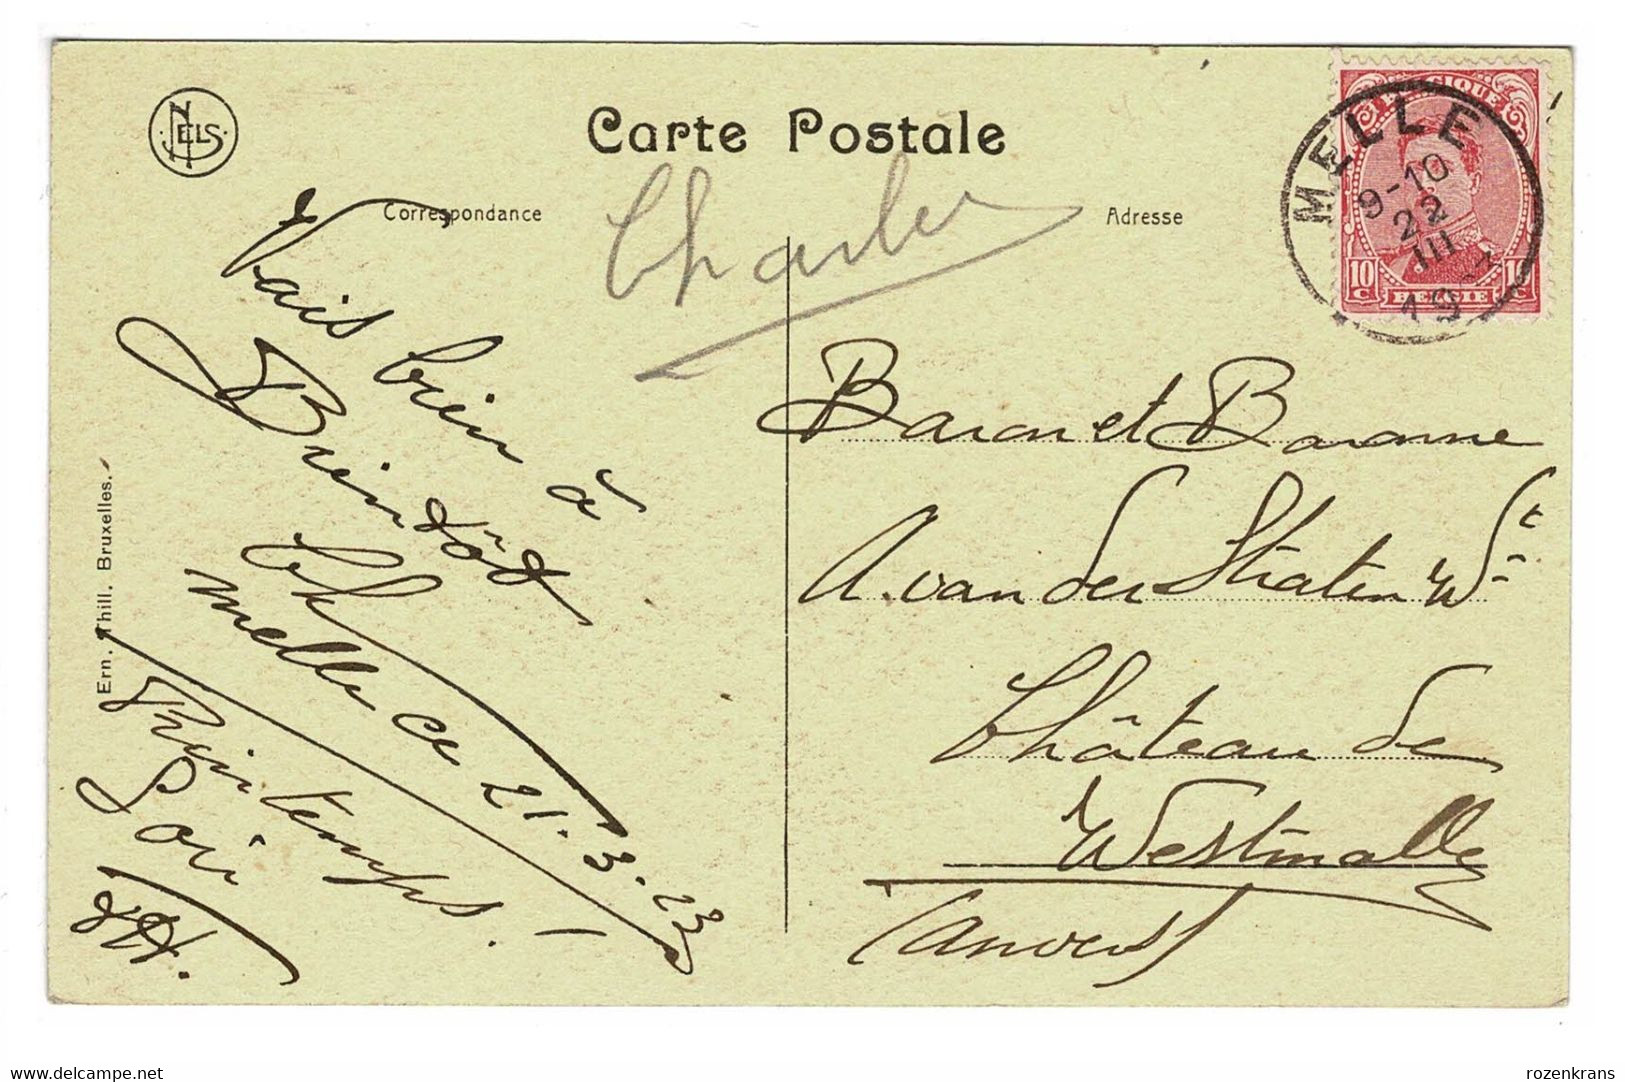 NELS
Carte Postale
Correspondance
Adresse
Charles
MELLE
9-10
22
III
19
BELGIQUE
10 c
BELGIE
1 c
Vais bien à
Bientôt
Ch
Melle ce 21.3.23
Printemps!
Soir
Baron et Baronne
A. van der Straten W
Château de
Westmalle
(Anvers)
Ern. Thill. Bruxelles.
rozenkrans